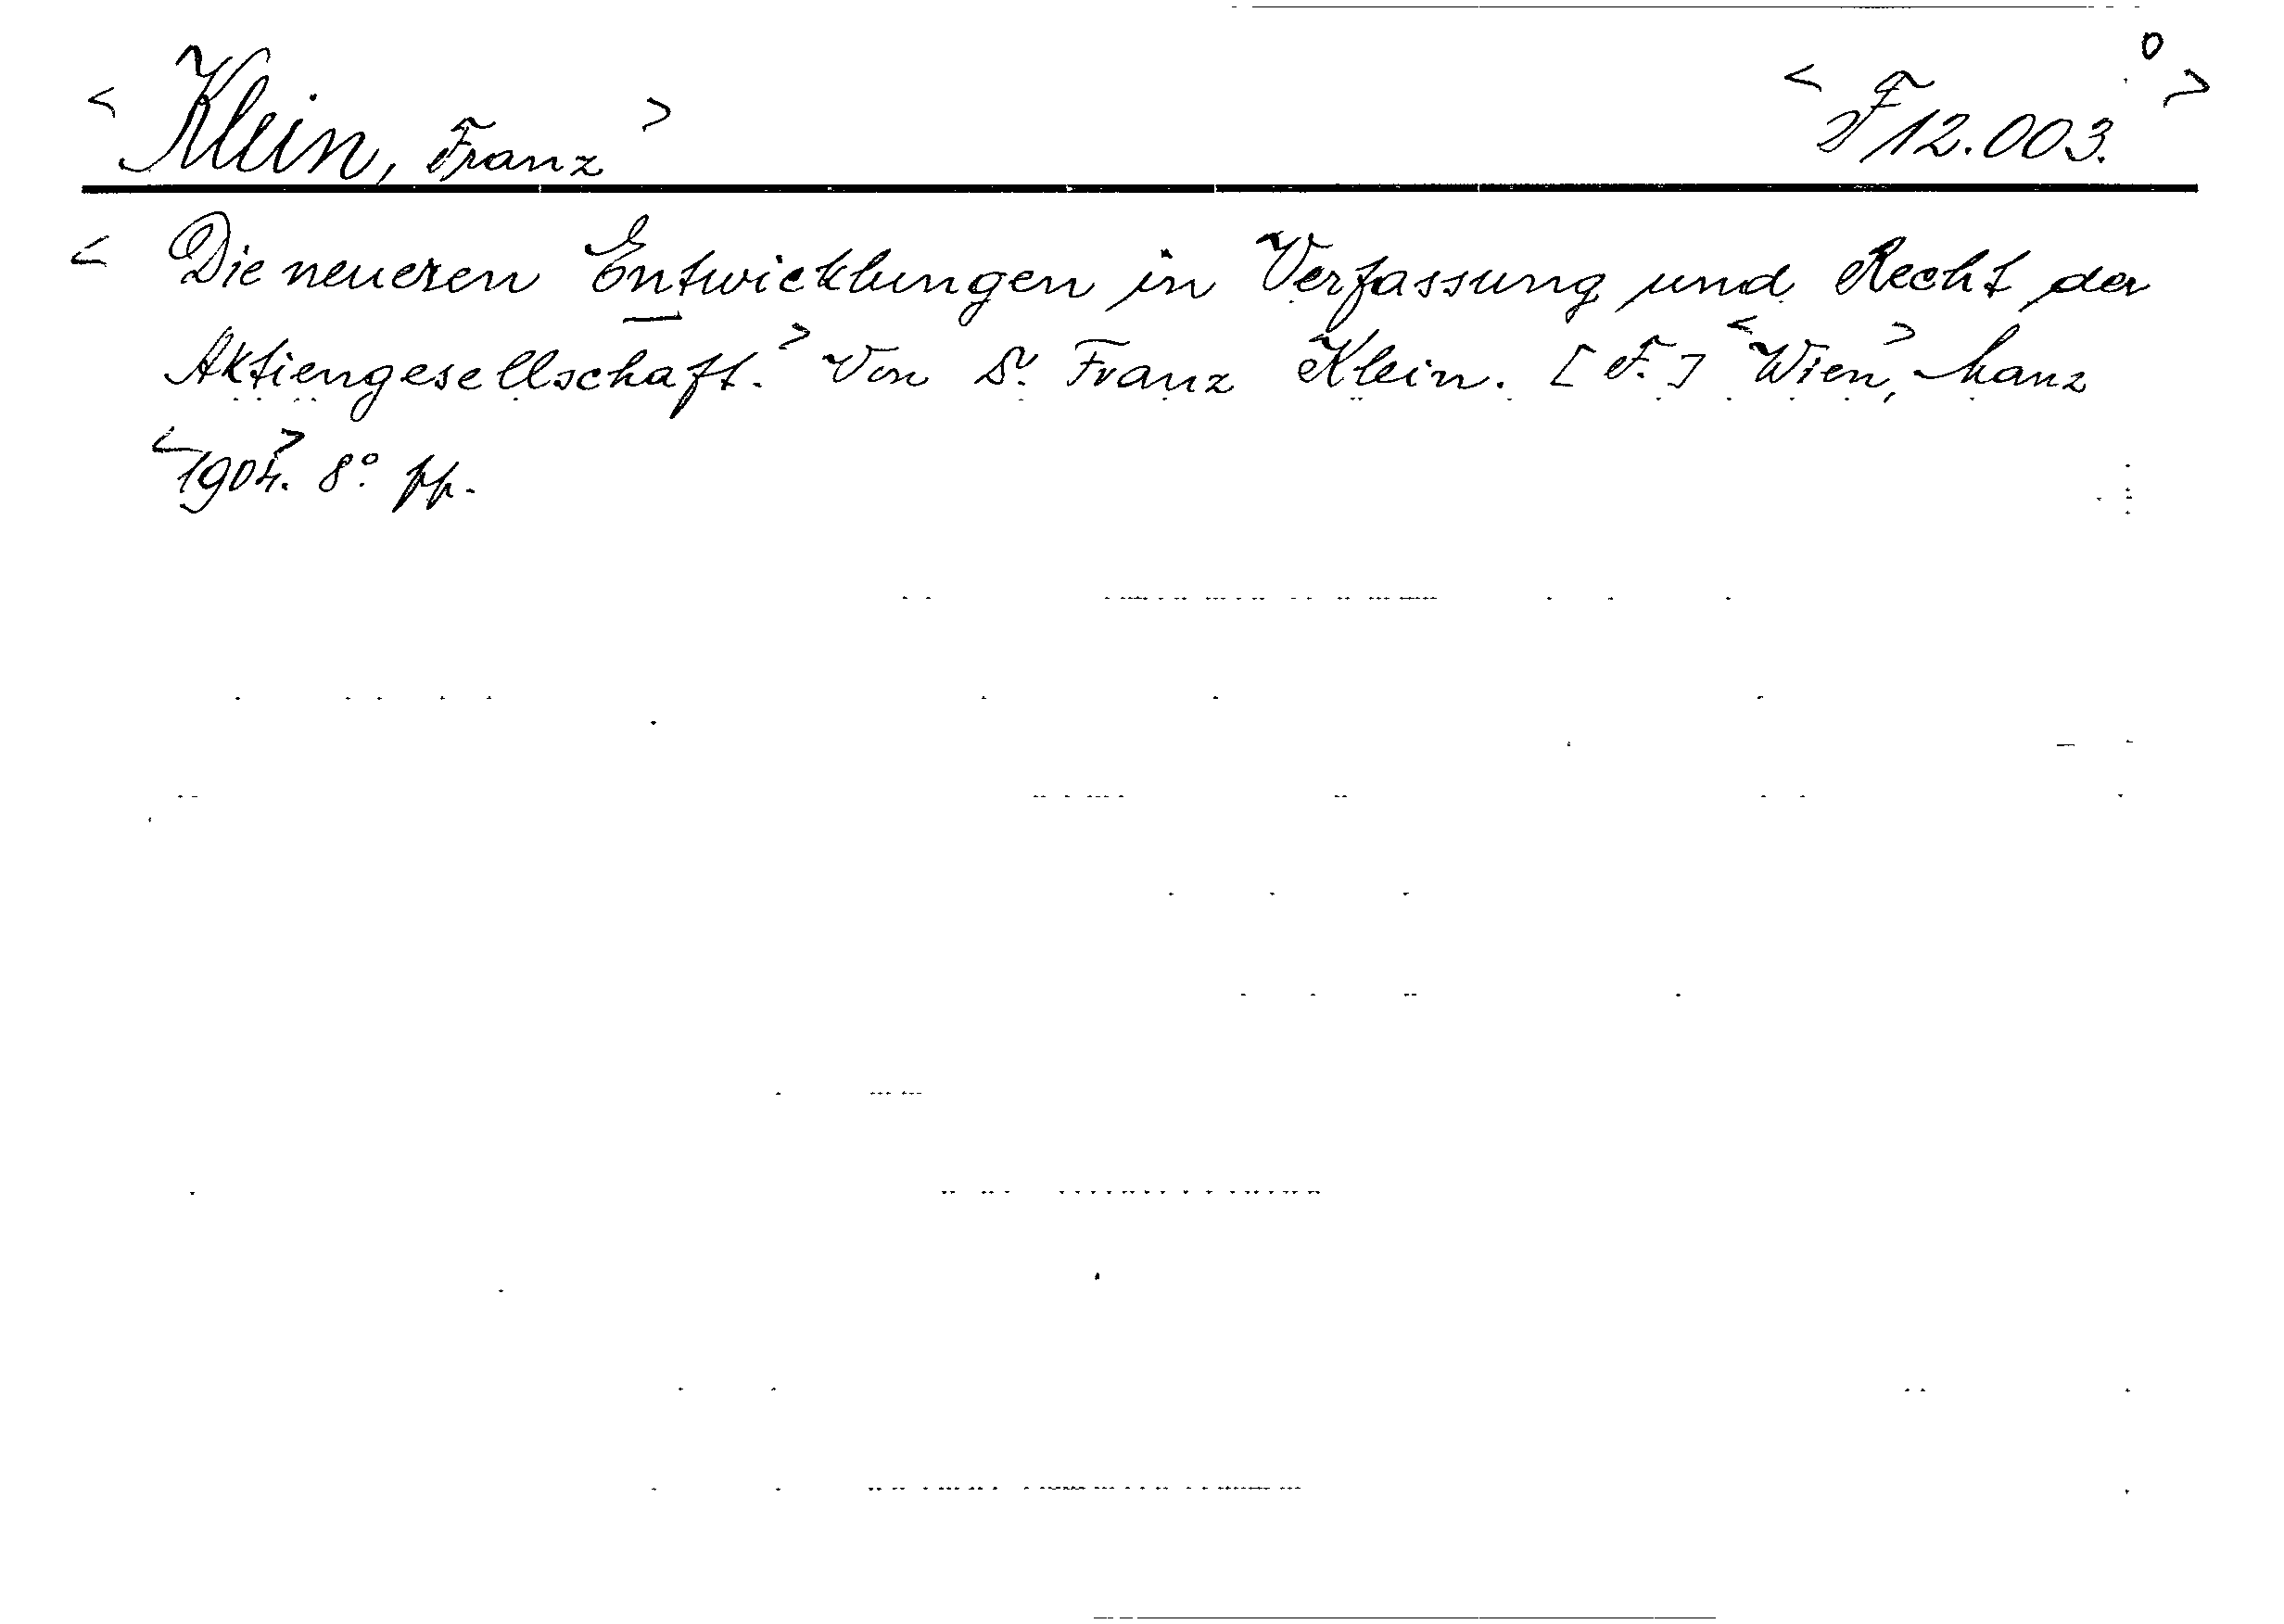 < Klein, Franz > < F 12.003. ° >
< Die neueren Entwicklungen in Verfassung und Recht der
Aktiengesellschaft. > Von Dr. Franz Klein. [F.] < Wien >, Manz
< 1904. > 8° pp.